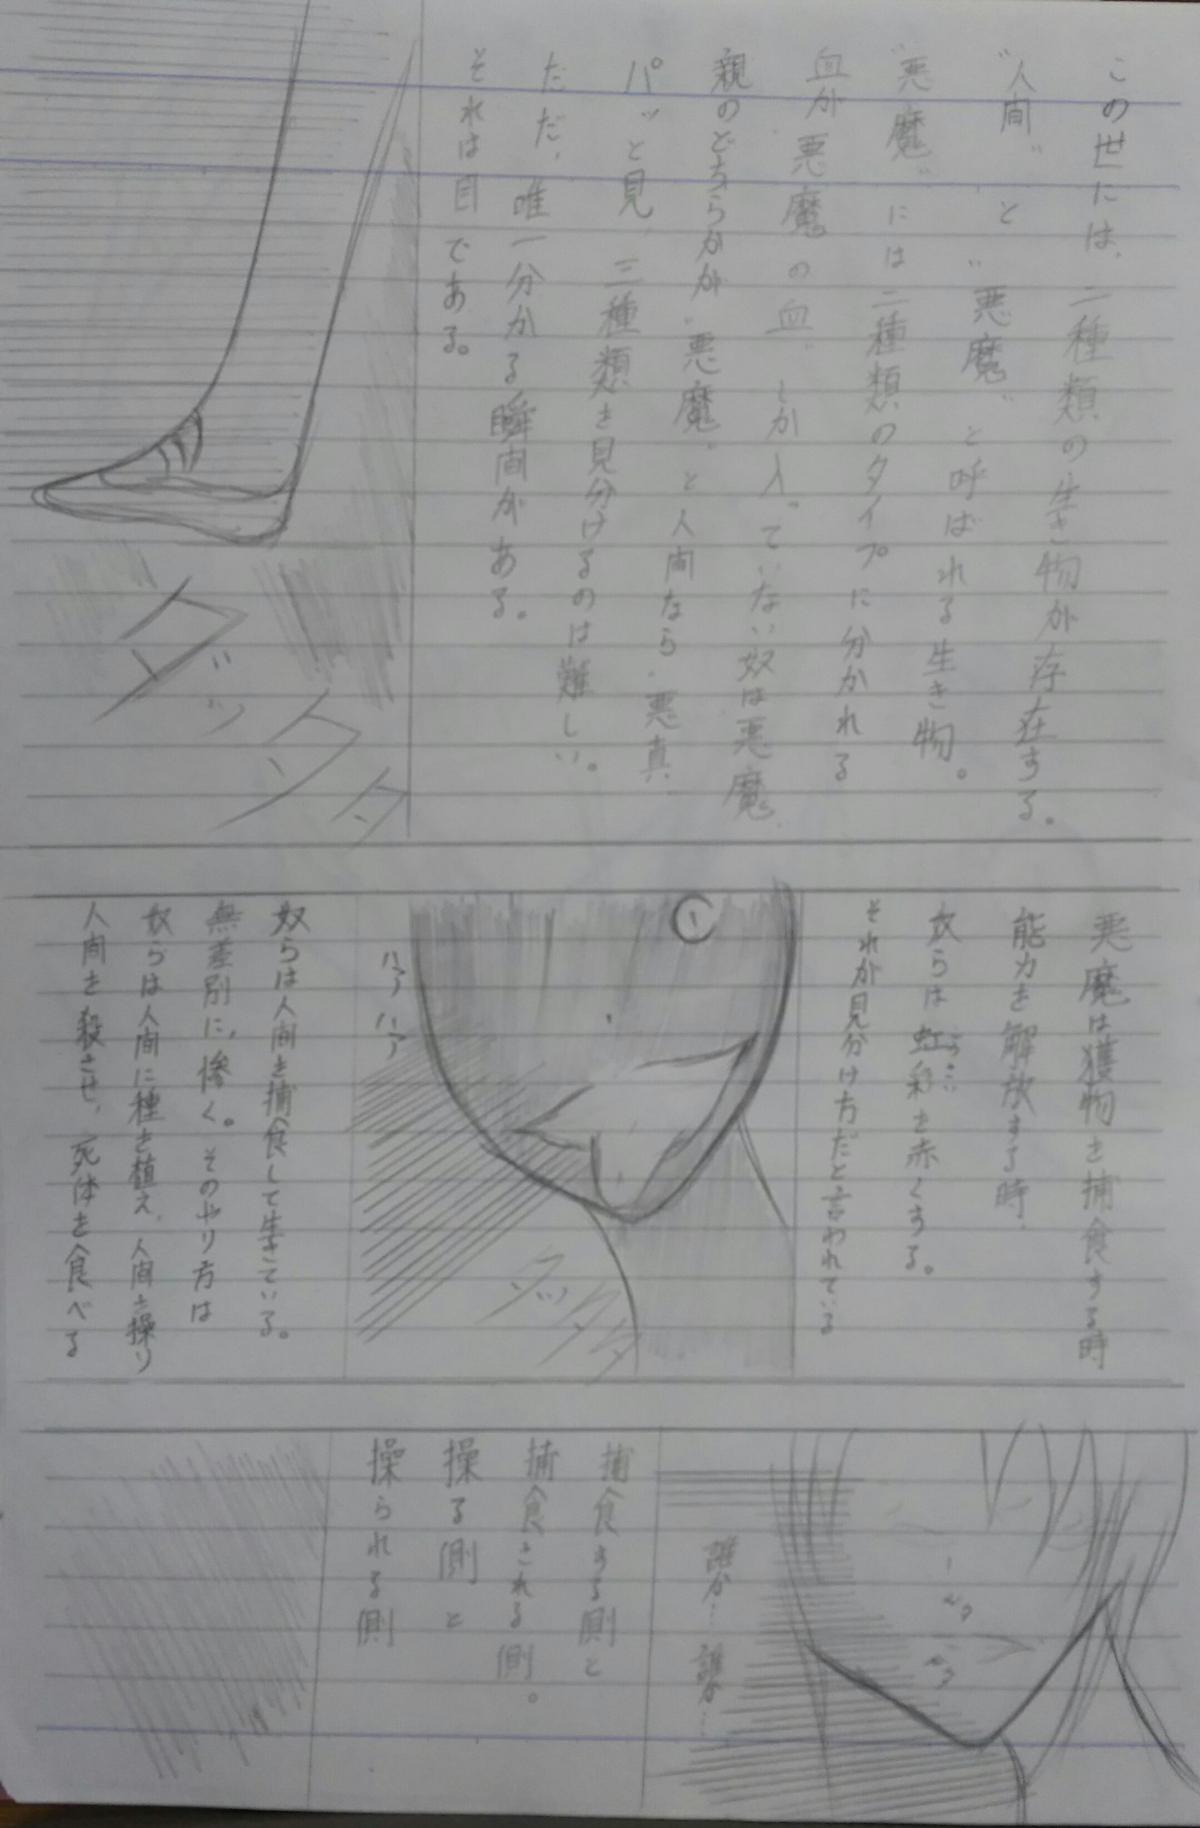 この世には、二種類の生き物が存在する。
"人間"と"悪魔"と呼ばれる生き物。
"悪魔"には二種類のタイプに分かれる
血が悪魔の血、しか入っていない奴は悪魔、
親のどちらかが、悪魔、と人間なら、悪真
パッと見、三種類を見分けるのは難しい。
ただ、唯一分かる瞬間がある。
それは目である。
ダッ
タ
タ
悪魔は獲物を捕食する時
能力を解放する時、
奴らは虹彩を赤くする。
それが見分け方だと言われている
ハァ
ハァ
ダッ
タ
タ
奴らは人間を捕食して生きている。
無差別に、惨く。そのやり方は
奴らは人間に種を植え、人間を操り
人間を殺させ、死体を食べる
誰か…誰か…
捕食する側と
捕食される側。
操る側と
操られる側